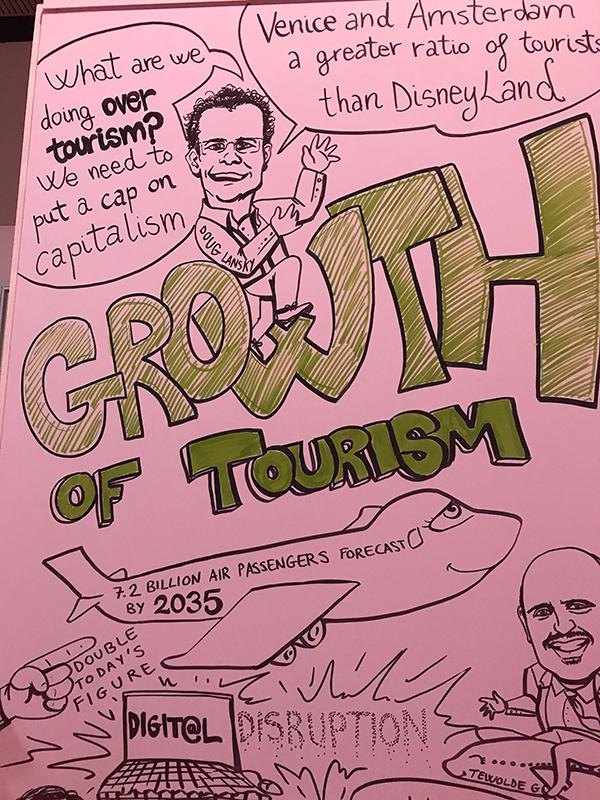 What are we
doing over
tourism?
We need to
put a cap on
capitalism
Venice and Amsterdam
a greater ratio of tourists
than DisneyLand
DOUG LANSKY
GROWTH
OF TOURISM
7.2 BILLION AIR PASSENGERS FORECAST
BY 2035
DOUBLE
TODAY'S
FIGURE
DIGIT@L
DISRUPTION
TEWOLDE G